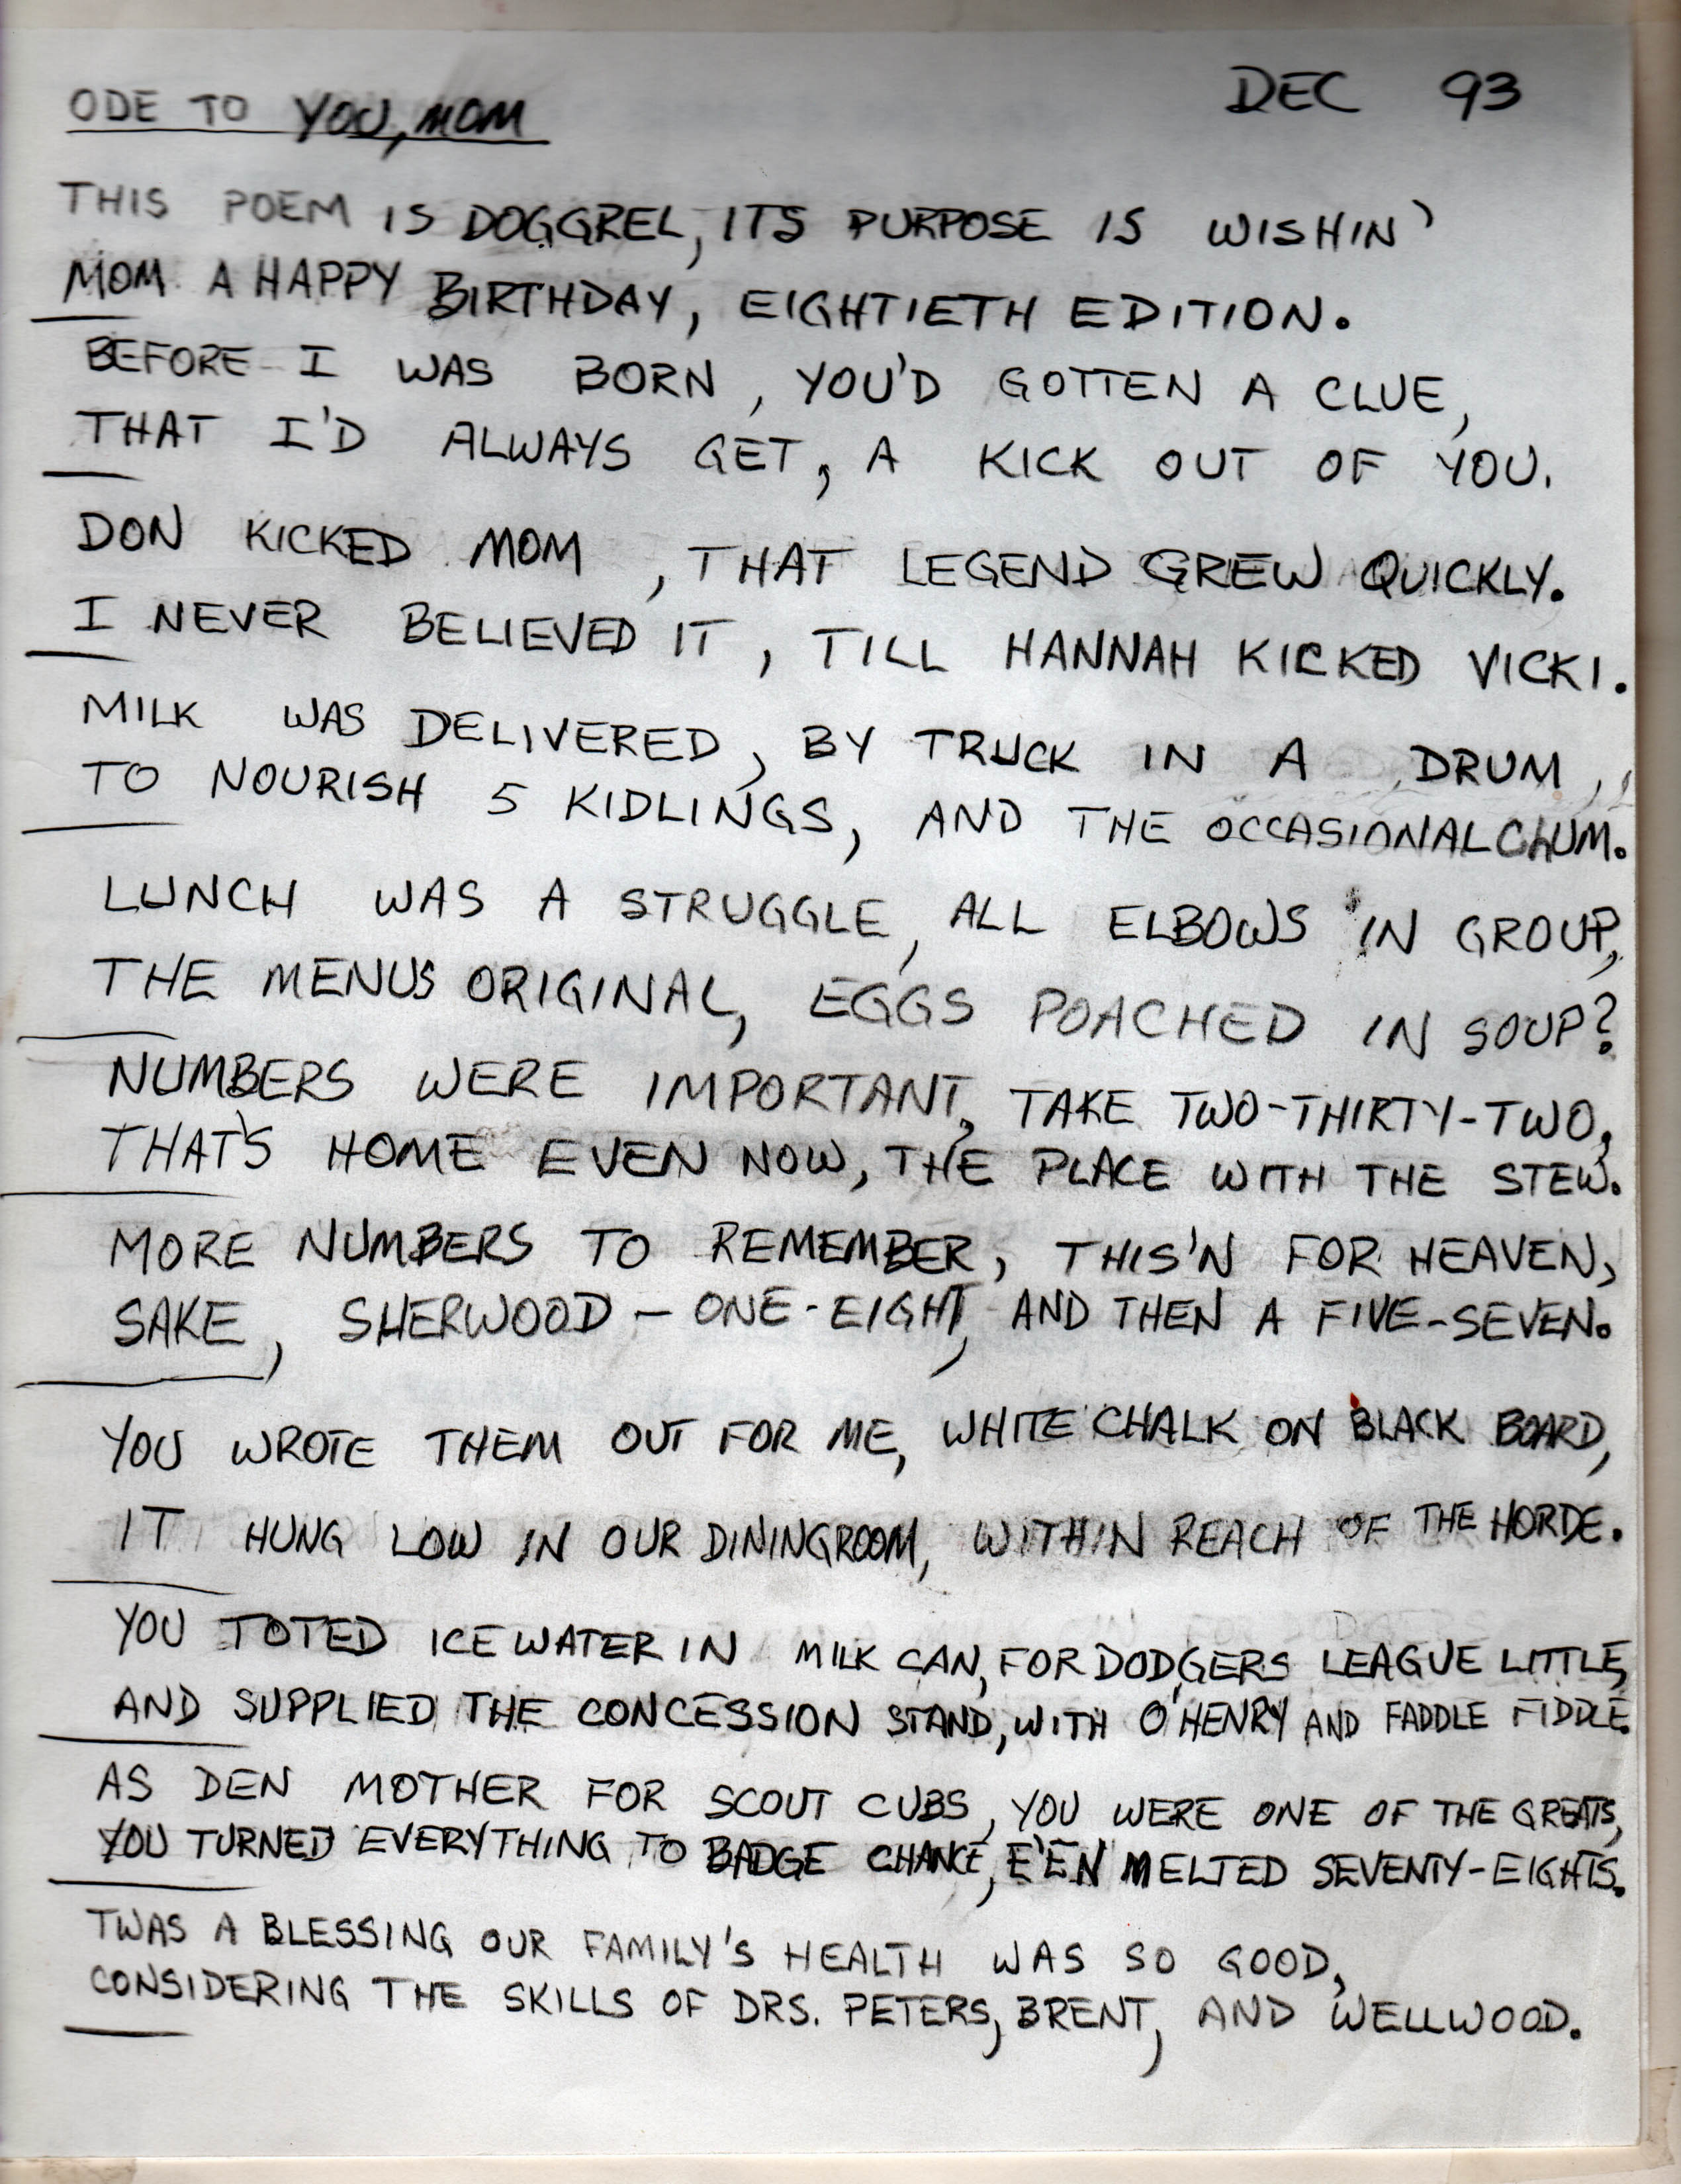 ODE TO YOU, MOM
DEC 93
THIS POEM IS DOGGREL, ITS PURPOSE IS WISHIN'
MOM A HAPPY BIRTHDAY, EIGHTIETH EDITION.
BEFORE I WAS BORN, YOU'D GOTTEN A CLUE,
THAT I'D ALWAYS GET, A KICK OUT OF YOU.
DON KICKED MOM, THAT LEGEND GREW QUICKLY.
I NEVER BELIEVED IT, TILL HANNAH KICKED VICKI.
MILK WAS DELIVERED, BY TRUCK IN A DRUM,
TO NOURISH 5 KIDLINGS, AND THE OCCASIONAL CHUM.
LUNCH WAS A STRUGGLE, ALL ELBOWS IN GROUP,
THE MENUS ORIGINAL, EGGS POACHED IN SOUP?
NUMBERS WERE IMPORTANT, TAKE TWO-THIRTY-TWO,
THAT'S HOME EVEN NOW, THE PLACE WITH THE STEW.
MORE NUMBERS TO REMEMBER, THIS'N FOR HEAVEN,
SAKE, SHERWOOD - ONE-EIGHT, AND THEN A FIVE-SEVEN.
YOU WROTE THEM OUT FOR ME, WHITE CHALK ON BLACK BOARD,
IT HUNG LOW IN OUR DININGROOM, WITHIN REACH OF THE HORDE.
YOU TOTED ICE WATER IN MILK CAN, FOR DODGERS LEAGUE LITTLE,
AND SUPPLIED THE CONCESSION STAND, WITH O'HENRY AND FADDLE FIDDLE.
AS DEN MOTHER FOR SCOUT CUBS, YOU WERE ONE OF THE GREATS,
YOU TURNED EVERYTHING TO BADGE CHANCE, E'EN MELTED SEVENTY-EIGHTS.
TWAS A BLESSING OUR FAMILY'S HEALTH WAS SO GOOD,
CONSIDERING THE SKILLS OF DRS. PETERS, BRENT, AND WELLWOOD.